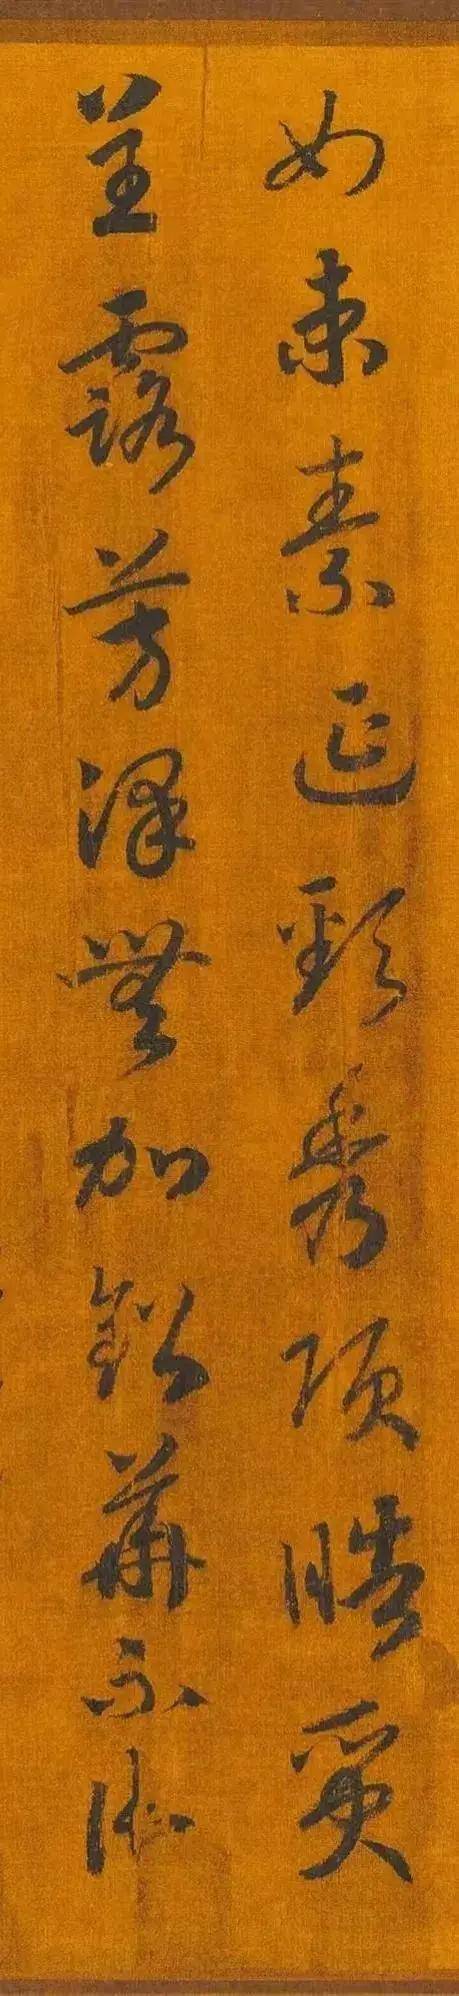 如束素延頸秀項皓質
呈露芳澤無加鉛華不御